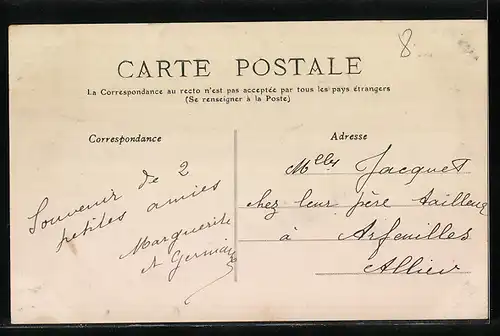 8
CARTE POSTALE
La Correspondance au recto n'est pas acceptée par tous les pays étrangers
(Se renseigner à la Poste)
Correspondance
Souvenir de 2
petites amies
Marguerite
et Germaine
Adresse
Mlles Jacquet
chez leur père tailleur
à Arfeuilles
Allier